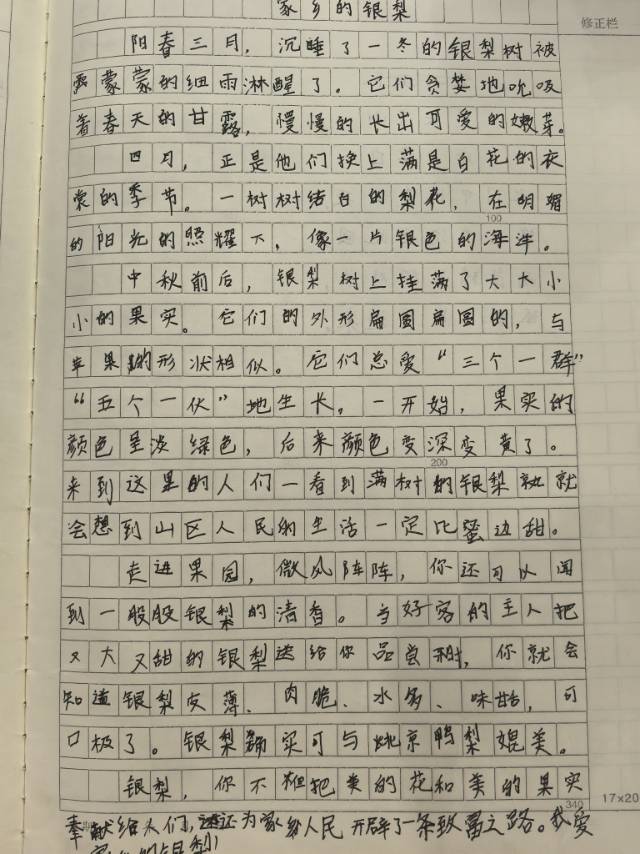 家乡的银梨
修正栏
阳春三月，沉睡了一冬的银梨树被
雾蒙蒙的细雨淋醒了。它们贪婪地吮吸
着春天的甘露，慢慢的长出可爱的嫩芽。
四月，正是他们换上满是白花的衣
裳的季节。一树树结白的梨花，在明媚
100
的阳光的照耀下，像一片银色的海洋。
中秋前后，银梨树上挂满了大大小
小的果实。它们的外形扁圆扁圆的，与
苹果的形状相似。它们总爱“三个一群”
“五个一伙”地生长。一开始，果实的
颜色呈淡绿色，后来颜色变深变黄了。
200
来到这里的人们一看到满树的银梨就就
会想到山区人民的生活一定比蜜边甜。
走进果园，微风阵阵，你还可以闻
到一股股银梨的清香。当好客的主人把
又大又甜的银梨送给你品尝时，你就会
知道银梨皮薄、肉脆、水多、味甜，可
口极了。银梨实可与北京鸭梨媲美。
银梨，你不但把美的花和美的果实
340
17×20
奉献给人们，还为家乡人民开辟了一条致富之路。我爱
家乡的银梨！